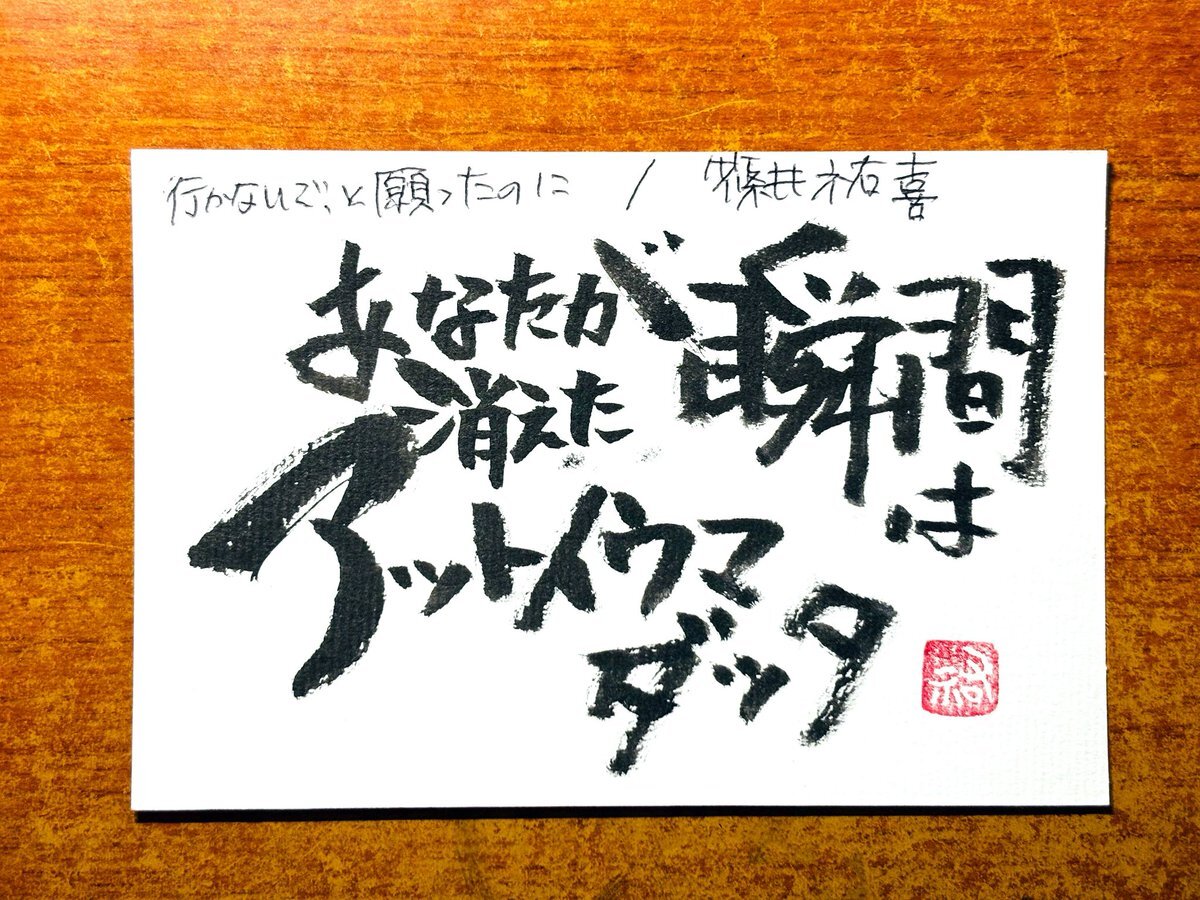 行かないで、と願ったのに / 篠井祐喜
あなたが
消えた
瞬間
は
アットイウマ
ダッタ